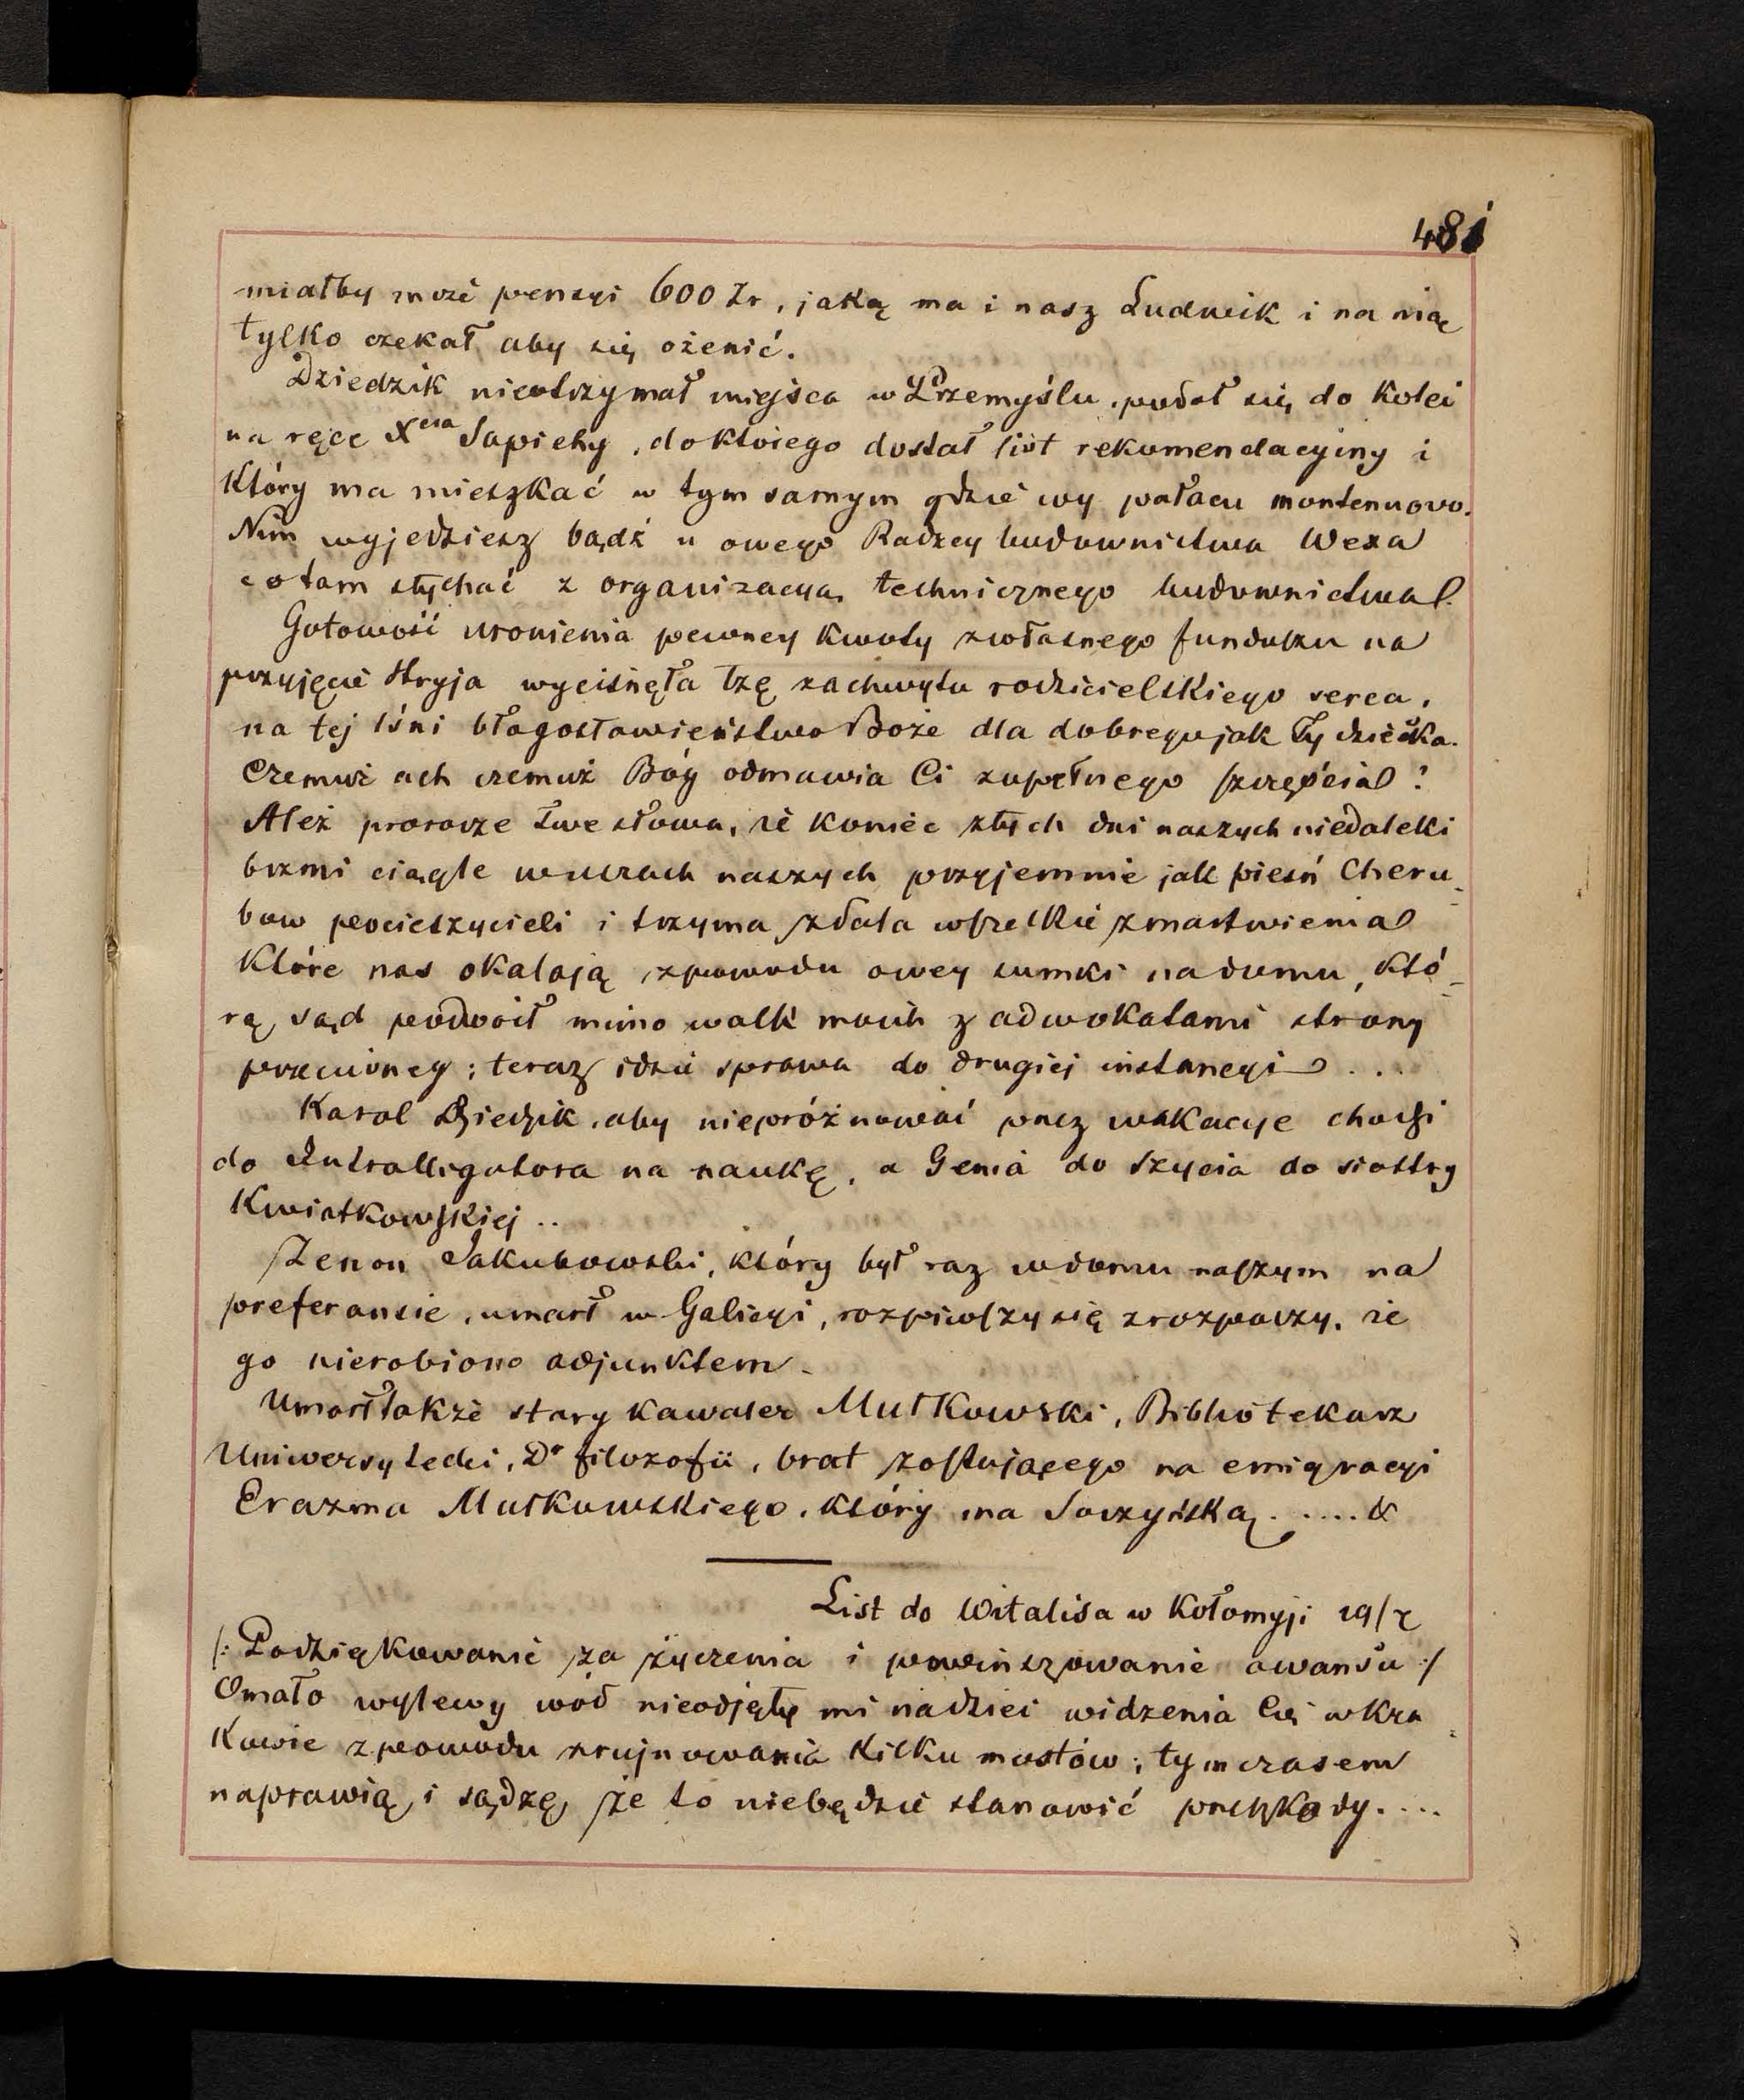 481
miałby może pensyi 600 Zr, jaką ma i nasz Ludwik i na nią
tylko czekał aby się ożenić.
Dziedzik nieotrzymał miejsca w Przemyślu, podał się do kolei
na ręce Xcia Sapiehy, do którego dostał list rekomendacyiny i
który ma mieszkać w tym samym gdzie wy pałacu montenuovo.
Nim wyjedziesz bądź u owego Radzcy budownictwa Wexa
co tam słychać z organizacyą technicznego budownictwa.
Gotowość uronienia pewney kwoty z własnego funduszu na
przyjęcie Stryja wycisnęła łzę zachwytu rodzicielskiego serca,
na tej lśni błogosławieństwo Boże dla dobrego jak Ty dziecka.
Czemuż ach czemuż Bóg odmawia Ci zupełnego szczęścia?
Ależ prorocze Twe słowa, że koniec złych dni naszych niedaleki
brzmi ciągle w uszach naszych przyjemnie jak pieśń Cheru-
bów pocieszycieli i trzyma zdala wszelkie zmartwienia
które nas okalają z powodu owey sumki na domu, któ-
rą sąd podwoił mimo walk moich z adwokatami strony
przeciwney; teraz idzie sprawa do drugiej instancyi ...
Karol Dziedzik, aby niepróżnować przez wakacye chodzi
do Intralligatora na naukę, a Genia do szycia do siostry
Kwiatkowskiej ..
Zenon Jakubowski, który był raz w domu naszym na
preferansie, umarł w Galicyi, rozpiwszy się z rozpaczy, że
go nierobiono adjunktem.
Umarł także stary kawaler Mułkowski, Bibliotekarz
Uniwersytecki, Dr filozofii, brat zostającego na emigracyi
Erazma Mułkowskiego, który ma Soczyńską. ..... &
List do Witalisa w Kołomyji 19/7
/: Podziękowanie za życzenia i powinszowanie awansu :/
Omało wylewy wód nieodjęły mi nadziei widzenia Cię w Kra-
kowie z powodu zrujnowania kilku mostów; tymczasem
naprawią i sądzę, że to niebędzie stanowić przeszkody. ...